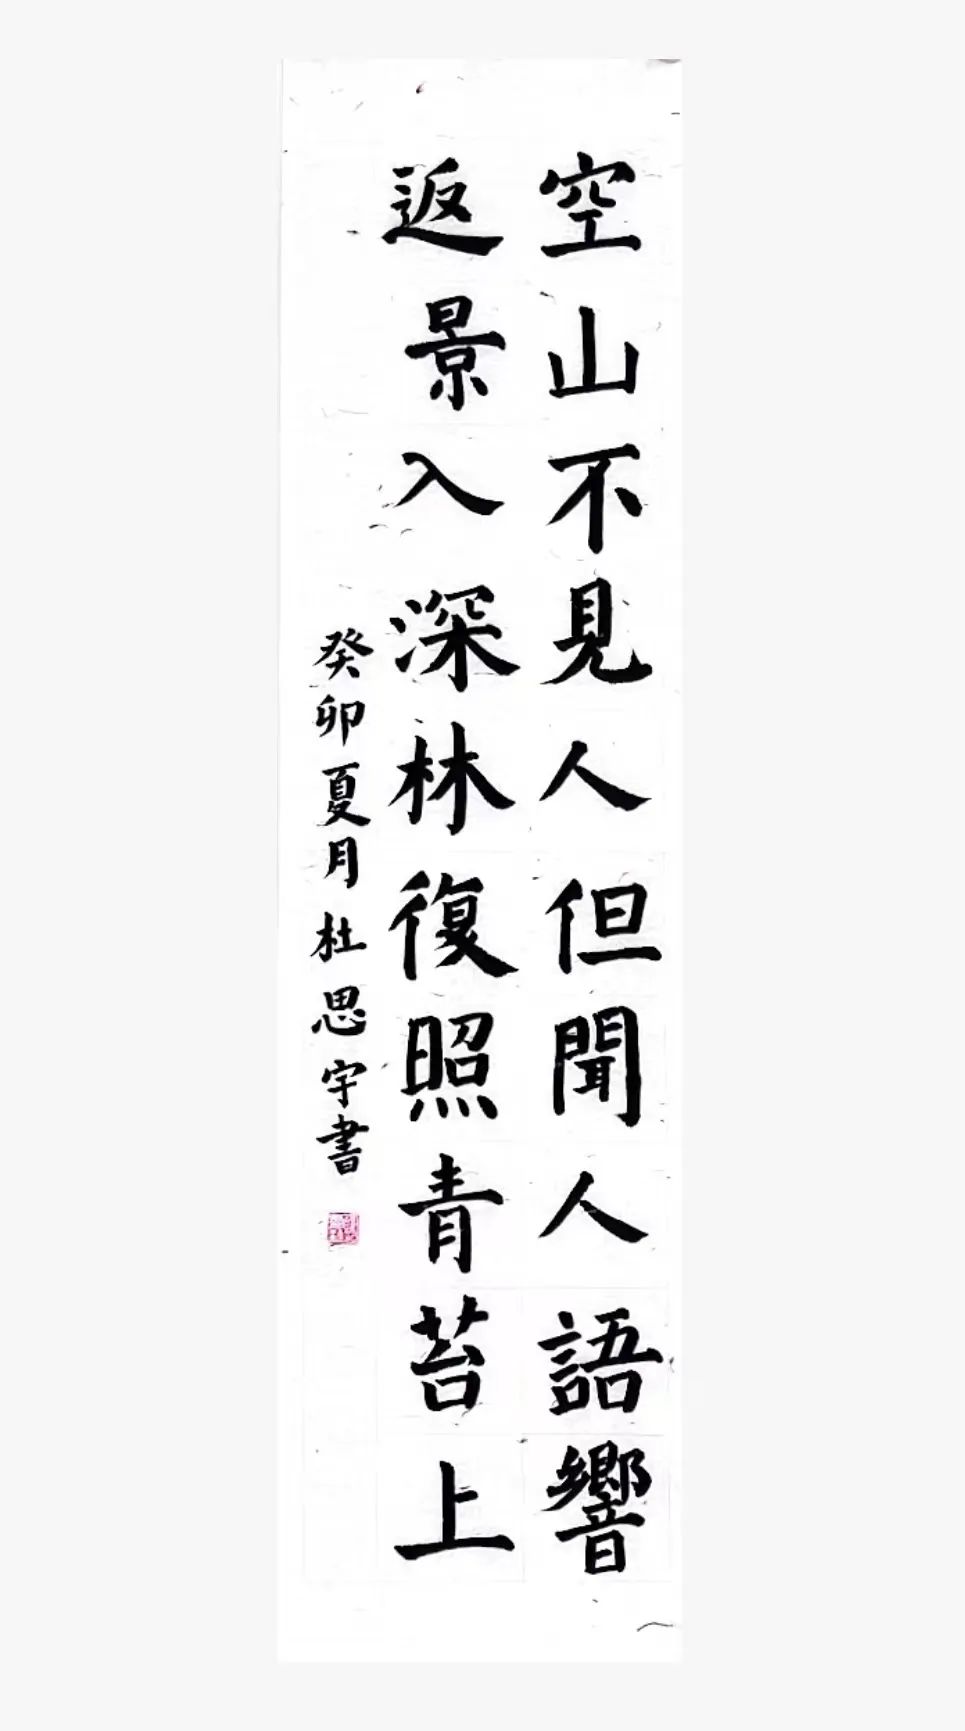 空山不見人但聞人語響
返景入深林復照青苔上
癸卯夏月杜思宇書